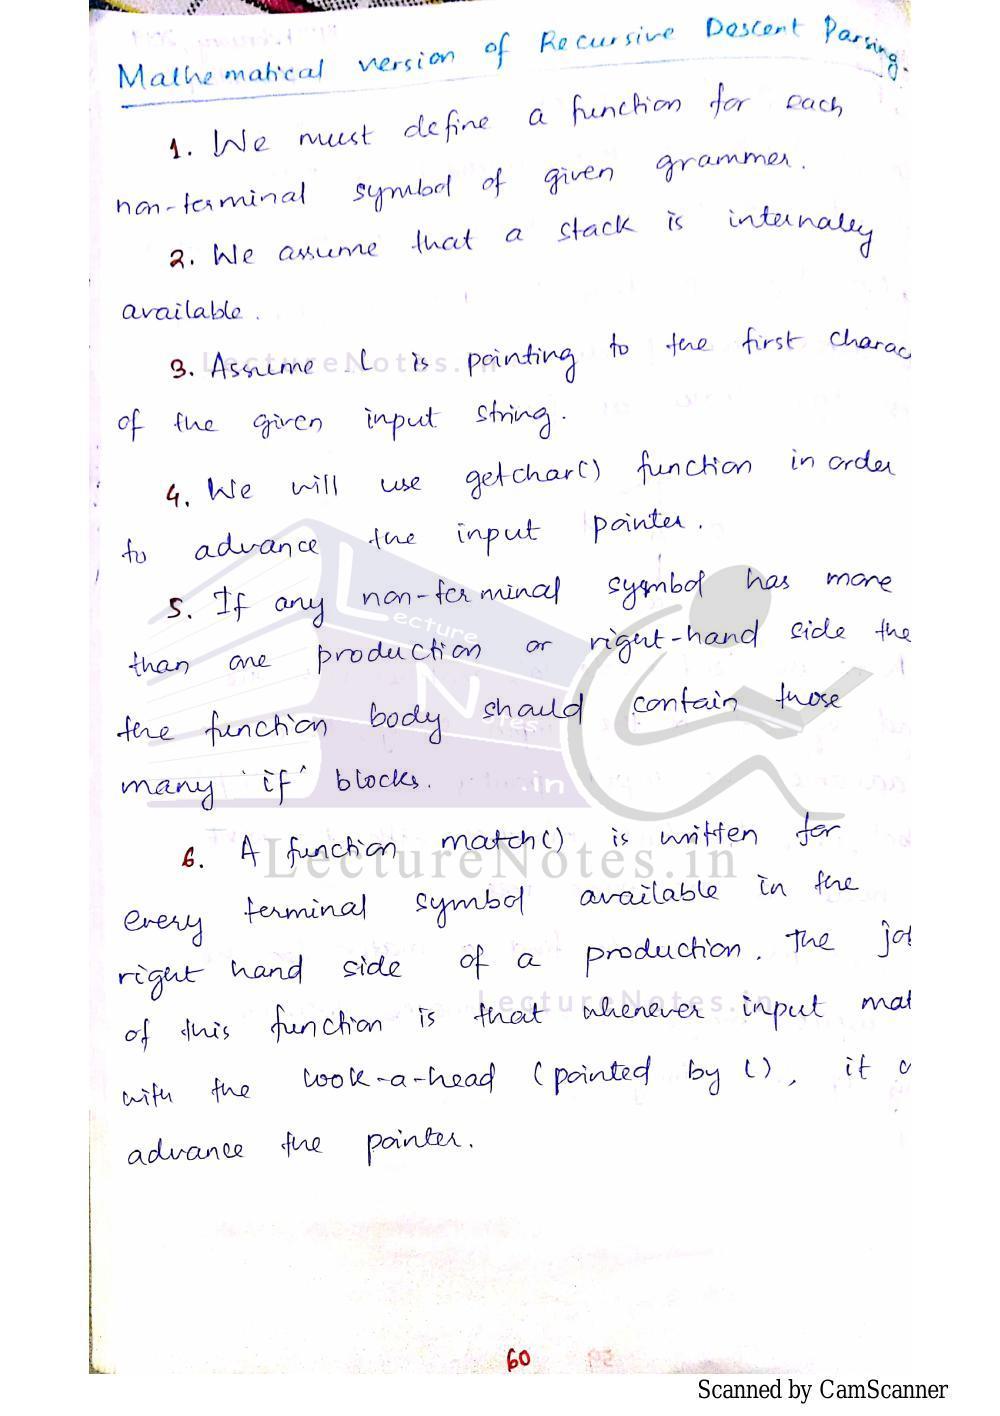 Mathematical version of Recursive Descent Parsing.
1. We must define a function for each
non-terminal symbol of given grammer.
2. We assume that a stack is internally
available.
3. Assume l is pointing to the first charac
of the given input string.
4. We will use getchar() function in order
to advance the input pointer.
5. If any non-terminal sysmbol has more
than one production or right-hand side the
the function body should contain those
many 'if' blocks.
6. A function match() is written for
every terminal symbol available in the
right hand side of a production. The jo
of this function is that whenever input mat
with the look-a-head (pointed by l), it
advance the pointer.
60
LectureNotes.in
Lecture
Notes
.in
LectureNotes.in
LectureNotes.in
Scanned by CamScanner